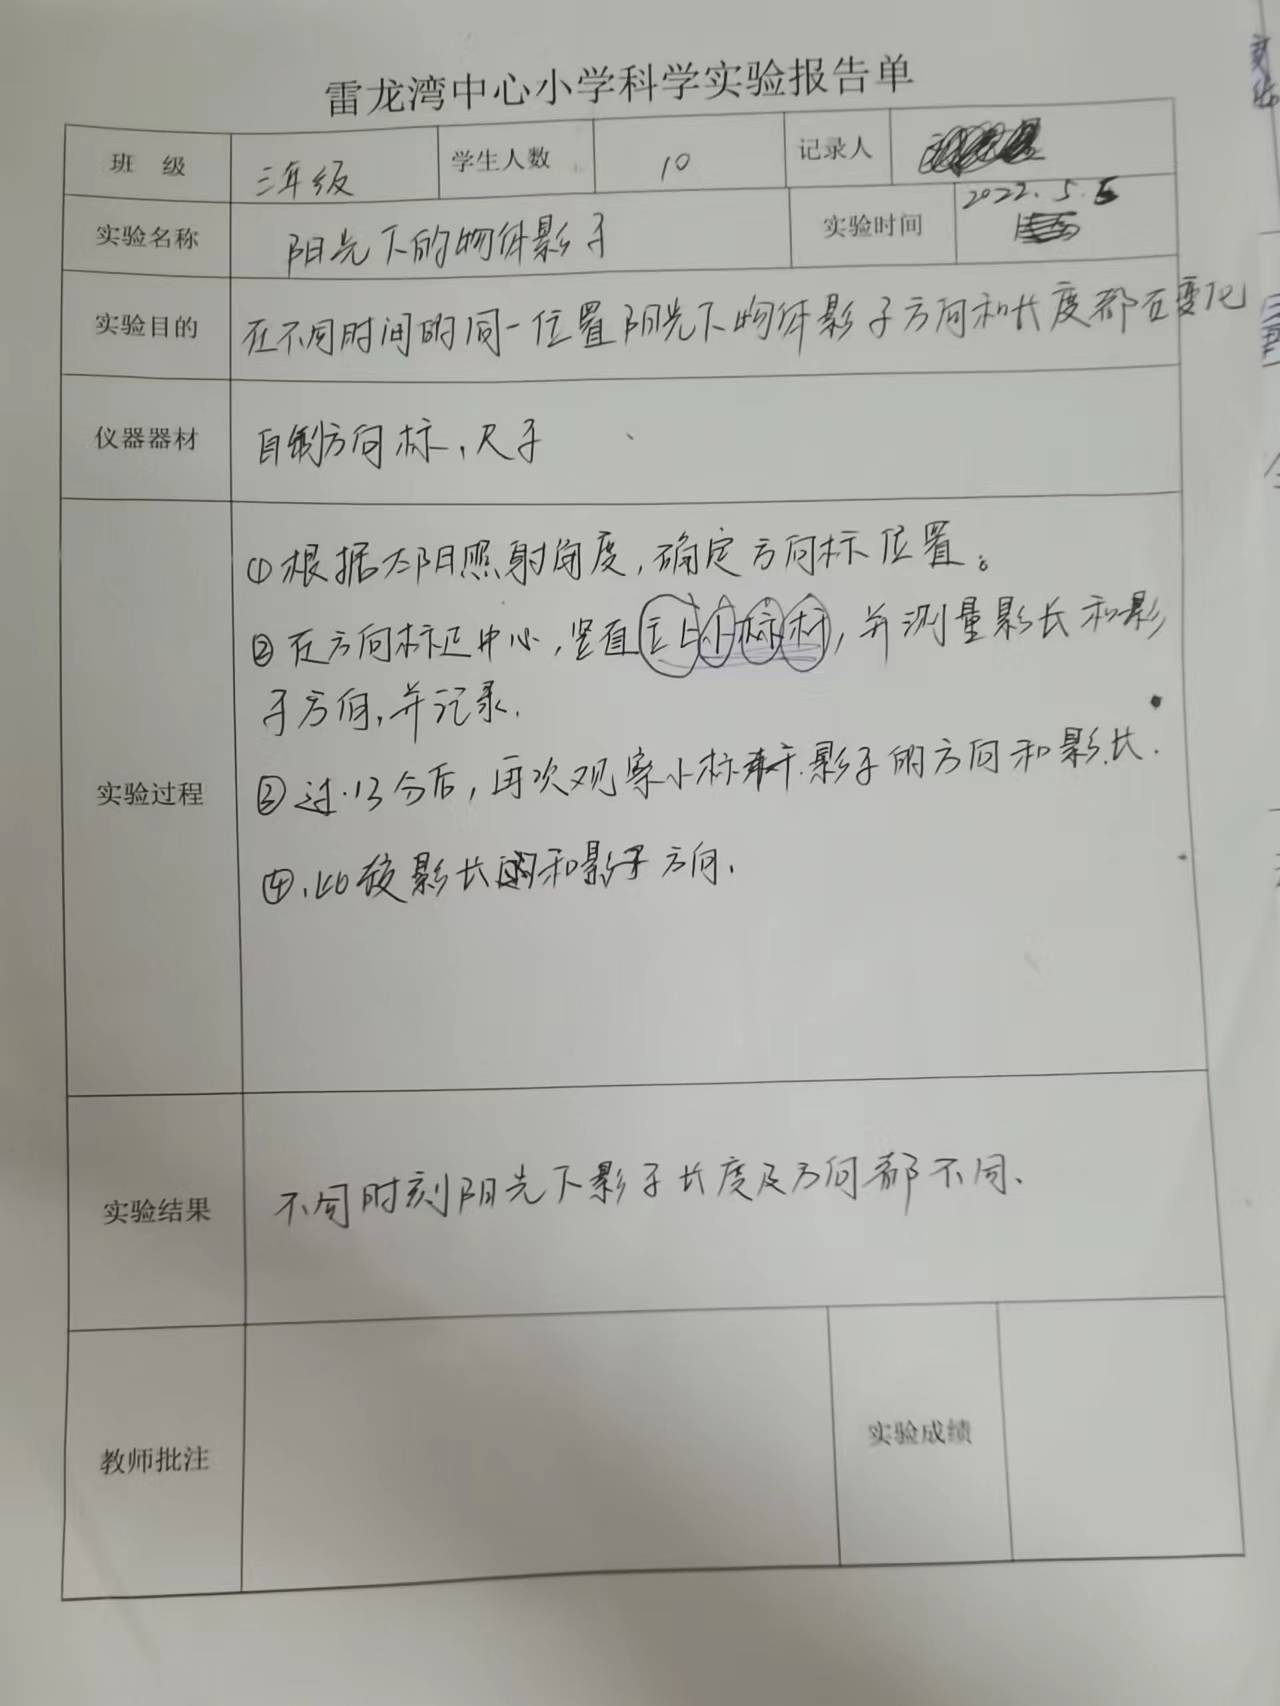 雷龙湾中心小学科学实验报告单
班 级 三年级 学生人数 10 记录人
实验名称 阳光下的物体影子 实验时间 2022.5.5
实验目的 在不同时间的同一位置阳光下物体影子方向和长度都在变化
仪器器材 自制方向标,尺子
实验过程
①根据太阳照射角度,确定方向标位置。
②在方向标正中心,竖直立上小标杆,并测量影长和影
子方向,并记录.
③过.13分后,再次观察小标杆影子的方向和影长.
④.比较影长和影子方向.
实验结果 不同时刻阳光下影子长度及方向都不同.
教师批注 实验成绩